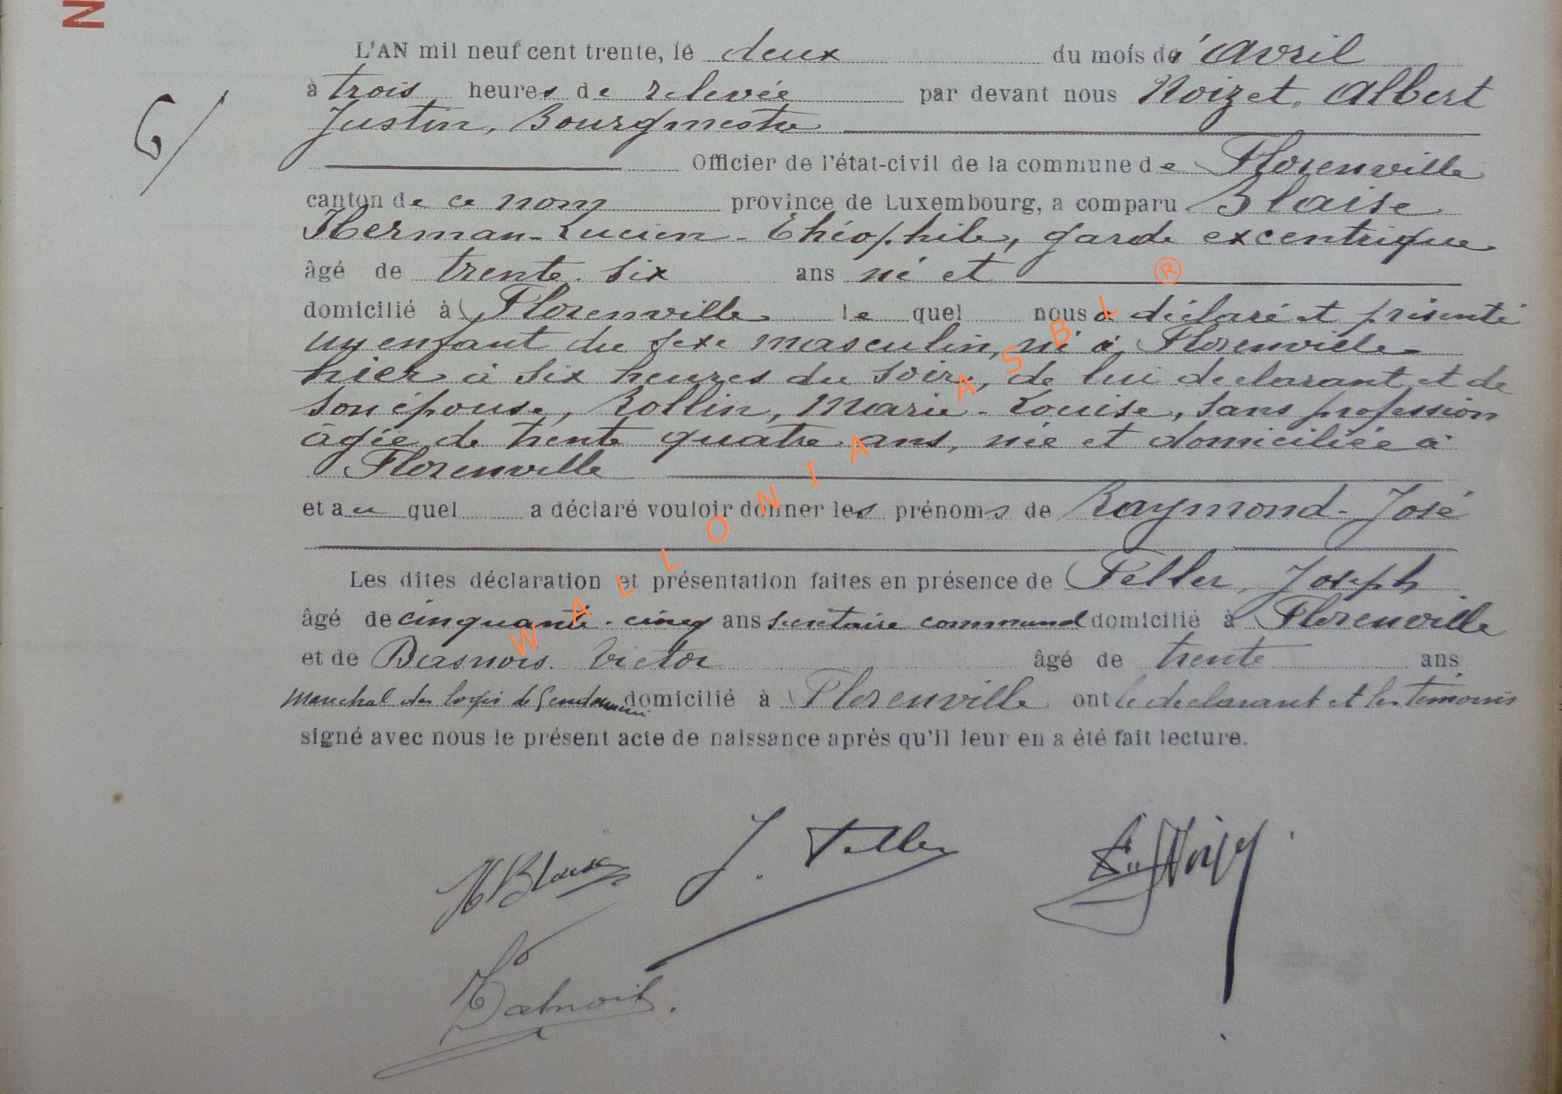 N
L'AN mil neuf cent trente, le deux du mois d'avril
6/
à trois heures de relevée par devant nous Noizet, Albert
Justin, Bourgmestre
Officier de l'état-civil de la commune de Florenville
canton de ce nom province de Luxembourg, a comparu Blaise
Herman-Lucien-Théophile, garde excentrique
âgé de trente six ans né et
domicilié à Florenville le quel nous a déclaré et présenté
un enfant du sexe masculin, né à Florenville
hier à six heures du soir, de lui déclarant et de
son épouse, Rollin, Marie-Louise, sans profession
âgée de trente quatre ans, née et domiciliée à
Florenville
et au quel a déclaré vouloir donner les prénoms de Raymond-José
Les dites déclaration et présentation faites en présence de Feller, Joseph
âgé de cinquante-cinq ans secrétaire communal domicilié à Florenville
et de Victor âgé de trente ans
maréchal des logis de Gendarmerie domicilié à Florenville ont le déclarant et les témoins
signé avec nous le présent acte de naissance après qu'il leur en a été fait lecture.
HBlaise J. Feller
WALLONIA ASBL ®